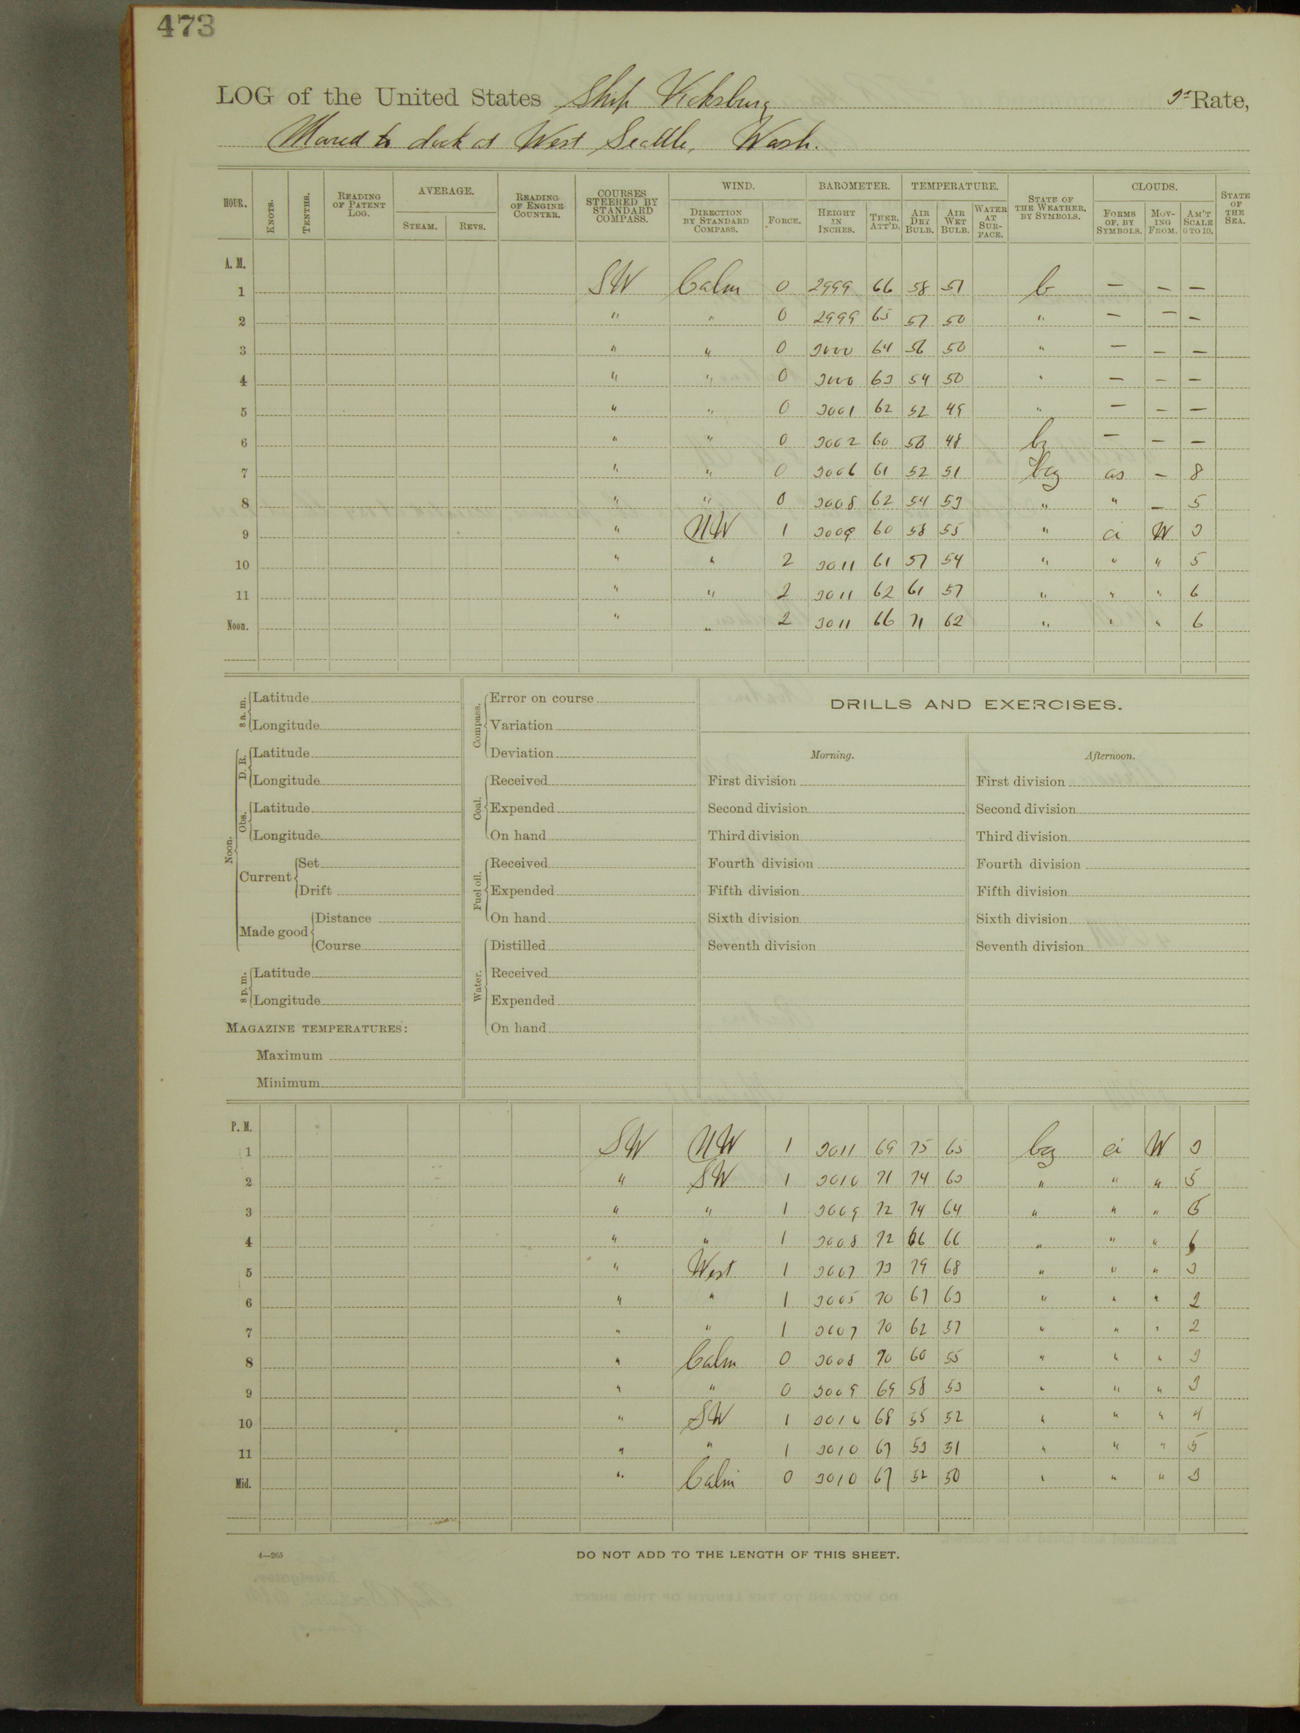 473
LOG of the United States Ship Vicksburg 3d Rate,
Moored to dock at West Seattle, Wash.
HOUR. KNOTS. TENTHS. READING OF PATENT LOG. AVERAGE. STEAM. REVS. READING OF ENGINE COUNTER. COURSES STEERED BY STANDARD COMPASS. WIND. DIRECTION BY STANDARD COMPASS. FORCE. BAROMETER. HEIGHT IN INCHES. THER. ATT'D. TEMPERATURE. AIR DRY BULB. AIR WET BULB. WATER AT SURFACE. STATE OF THE WEATHER, BY SYMBOLS. CLOUDS. FORMS OF, BY SYMBOLS. MOVING FROM. AM'T SCALE 0 TO 10. STATE OF THE SEA.
A. M.
1 SW Calm 0 2999 66 58 51 b — — —
2 " " 0 2999 65 57 50 " — — —
3 " " 0 3000 64 56 50 " — — —
4 " " 0 3000 63 54 50 " — — —
5 " " 0 3001 62 52 49 " — — —
6 " " 0 3002 60 50 48 bz — — —
7 " " 0 3006 61 52 51 bcz as — 8
8 " " 0 3008 62 54 53 " " — 5
9 " NW 1 3009 60 58 55 " ci W 3
10 " " 2 3011 61 57 54 " " " 5
11 " " 2 3011 62 61 57 " " " 6
Noon. " " 2 3011 66 71 62 " " " 6
8 a. m. Latitude
Longitude
Noon. D. R. Latitude
Longitude
Obs. Latitude
Longitude
Current Set
Drift
Made good Distance
Course
8 p. m. Latitude
Longitude
MAGAZINE TEMPERATURES:
Maximum
Minimum
Compass. Error on course
Variation
Deviation
Coal. Received
Expended
On hand
Fuel oil. Received
Expended
On hand
Water. Distilled
Received
Expended
On hand
DRILLS AND EXERCISES.
Morning.
First division
Second division
Third division
Fourth division
Fifth division
Sixth division
Seventh division
Afternoon.
First division
Second division
Third division
Fourth division
Fifth division
Sixth division
Seventh division
P. M.
1 SW NW 1 3011 69 75 65 bcz ci W 3
2 " SW 1 3010 71 74 63 " " " 5
3 " " 1 3009 72 74 64 " " " 5
4 " " 1 3008 72 66 " " " 6
5 " West 1 3007 73 79 68 " " " 3
6 " " 1 3005 70 67 63 " " " 2
7 " " 1 3007 70 62 57 " " " 2
8 " Calm 0 3008 70 60 55 " " " 3
9 " " 0 3009 69 58 53 " " " 3
10 " SW 1 3010 68 55 52 " " " 4
11 " " 1 3010 67 53 51 " " " 5
Mid. " Calm 0 3010 67 52 50 " " " 3
4—265
DO NOT ADD TO THE LENGTH OF THIS SHEET.